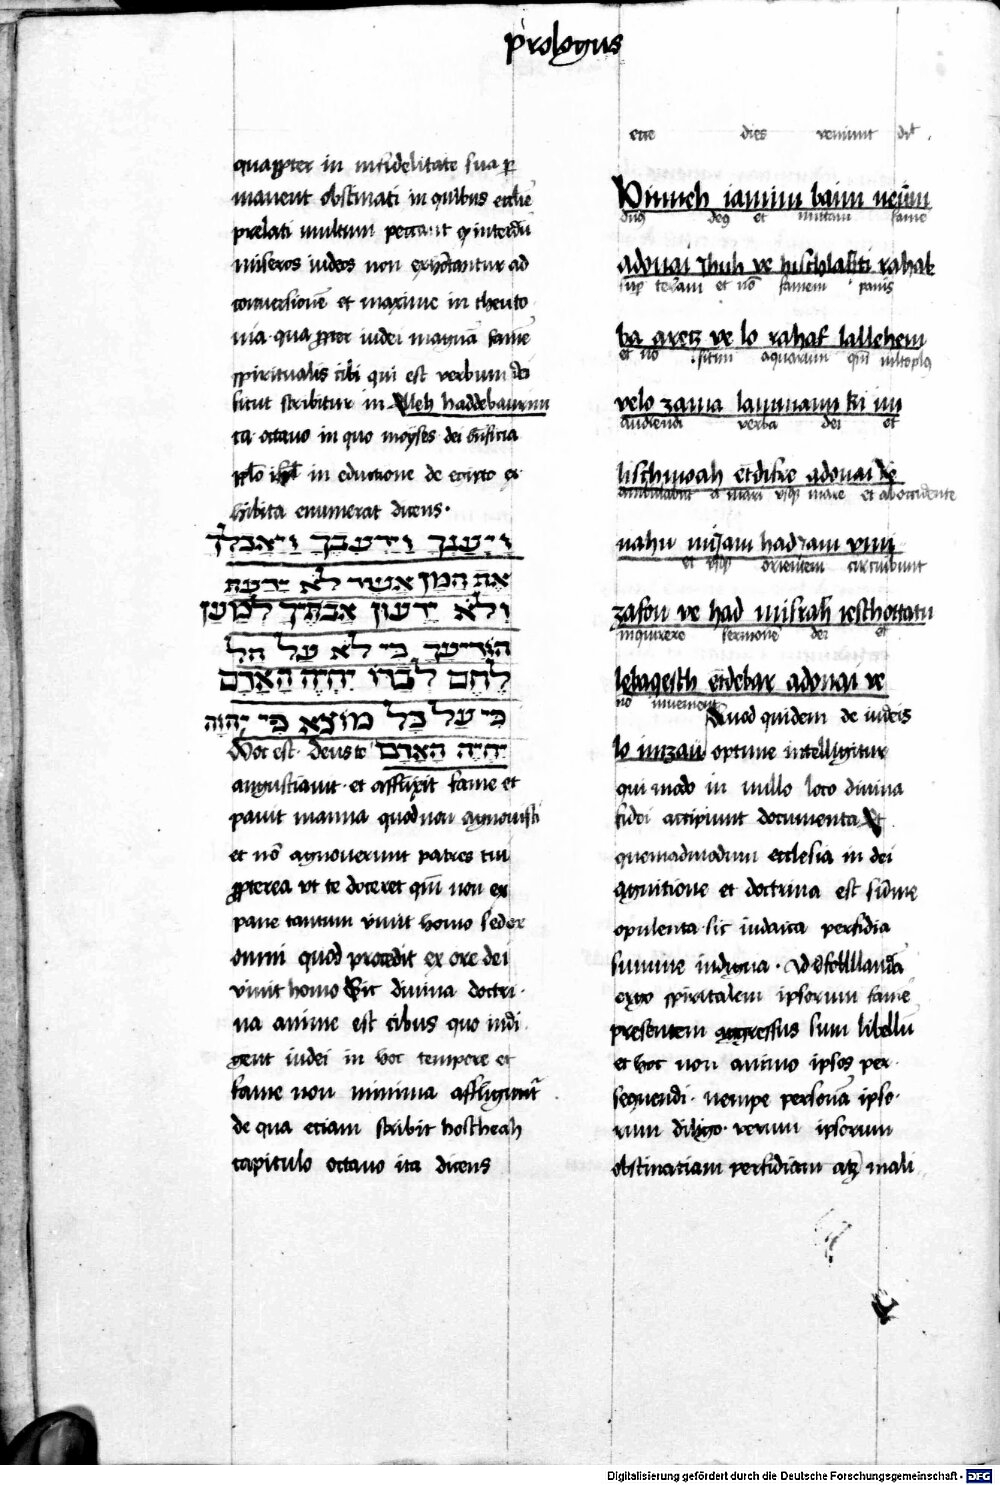 prologus
quapropter in infidelitate sua per
manent obstinati in quibus ecclie
prelati multum peccant qr interdu
miseros iudeos non exhortantur ad
conuersionē et maxime in theuto
nia. quapropter iudei magnā famē
spiritualis cibi qui est verbum dei
sicut scribitur in Elleh haddebaurim
ca. octauo in quo moyses dei bn̄ficia
pplo isrl in eductione de egipto ex
hibita enumerat dicens.
ויענך וירעבך ויאכלך
את המן אשר לא ידעת
ולא ידעון אבתיך למען
הוריעך כי לא על הל
לחם לברו יחיה האדם
כי על כל מוצא פי יהוה
יחיה האדם
Hoc est. deus te
angustiauit. et afflixit fame et
pauit manna quod non agnouisti
et nō agnouerunt patres tui
propterea vt te doceret qm̄ non ex
pane tantum viuit homo sed ex
omni quod procedit ex ore dei
viuit homo Sic diuina doctri
na anime est cibus quo indi
gent iudei in hoc tempore et
fame non minima affligunt̄
de qua etiam scribit hoscheah
capitulo octauo ita dicens
ecce dies veniunt dit.
Hinneh iamim baim neūm
dn̄s deg et mittam fame
adonai Jhuh ve hischlahti rahab
sup terram et nō famem panis
ba aretz ve lo rahaf lallehem
et nō sitim aquarum qm̄
velo zama lammaim ki im
audiendi verba dei et
lischmoah et difre adonai ve
ambulabūt a mari vsqz mare et ab occidente
nahu mijam had iam vmi
et vsqz orientem circuibunt
zafon ve had misrah ieschottatu
inquirere sermonē dei et
lebaqesch et debar adonai ve
nō inuenient
lo imzau Quod quidem de iudeis
optime intelligitur
qui modo in nullo loco diuina
fidei accipiunt documenta Et
quemadmodum ecclesia in dei
agnitione et doctrina est sūme
opulenta. sic iudaica perfidia
summe indigna. Ad tollandā
ergo spiritalem ipsorum famē
presentem aggressus sum libellū
et hoc non animo ipsos per
sequendi. nempe personā ipso
rum diligo. verum ipsorum
obstinatiam perfidiam atqz mali
Digitalisierung gefördert durch die Deutsche Forschungsgemeinschaft - DFG